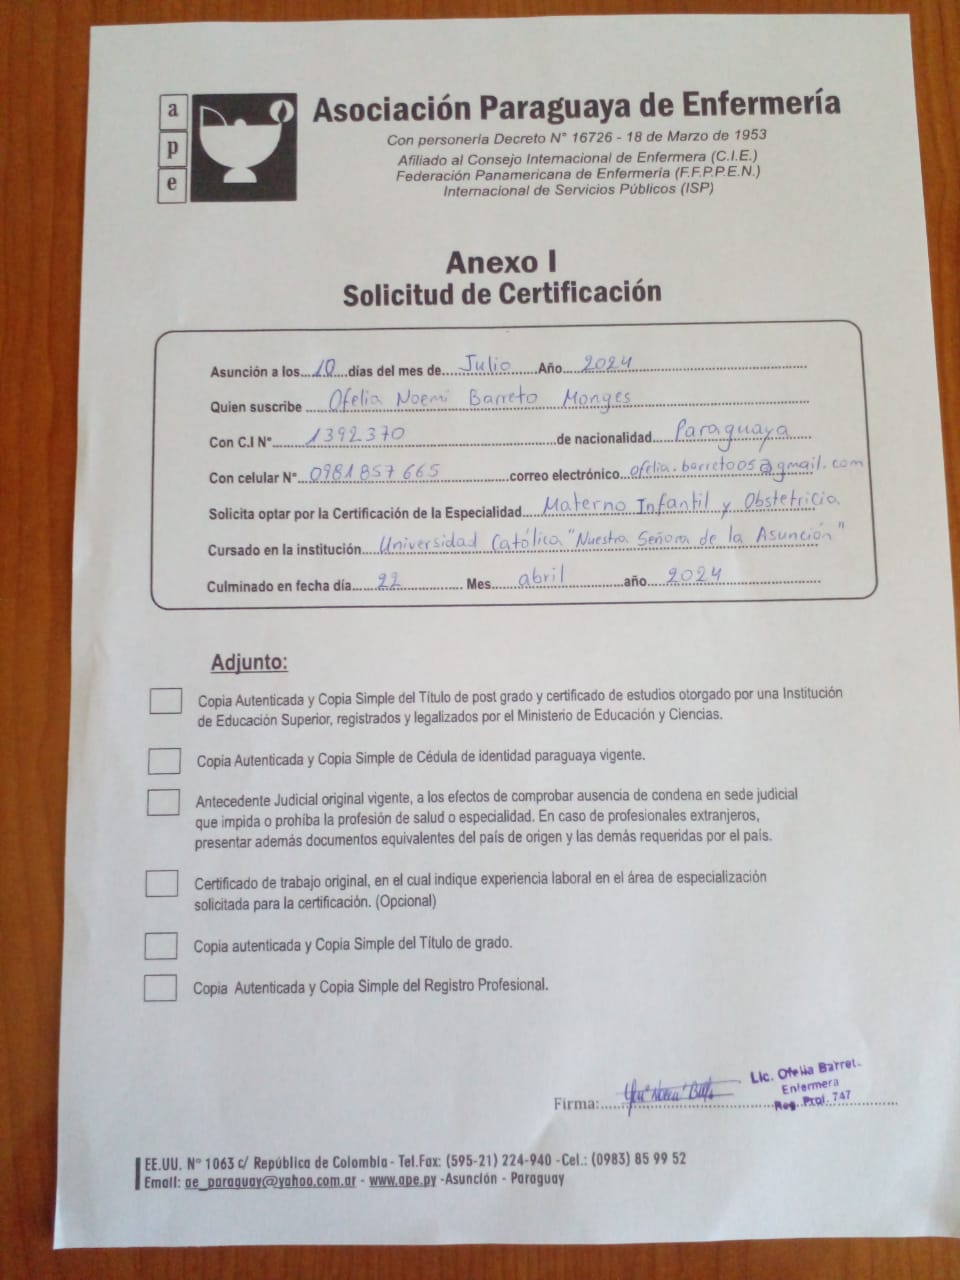 a
p
e
Asociación Paraguaya de Enfermería
Con personería Decreto N° 16726 - 18 de Marzo de 1953
Afiliado al Consejo Internacional de Enfermera (C.I.E.)
Federación Panamericana de Enfermería (F.F.P.P.E.N.)
Internacional de Servicios Públicos (ISP)
Anexo I
Solicitud de Certificación
Asunción a los 10 días del mes de Julio Año 2024
Quien suscribe Ofelia Noemi Barreto Monges
Con C.I N° 1392370 de nacionalidad Paraguaya
Con celular N° 0981 857 665 correo electrónico ofelia.barreto05@gmail.com
Solicita optar por la Certificación de la Especialidad Materno Infantil y Obstetricia
Cursado en la institución Universidad Católica "Nuestra Señora de la Asunción"
Culminado en fecha día 22 Mes abril año 2024
Adjunto:
Copia Autenticada y Copia Simple del Título de post grado y certificado de estudios otorgado por una Institución
de Educación Superior, registrados y legalizados por el Ministerio de Educación y Ciencias.
Copia Autenticada y Copia Simple de Cédula de identidad paraguaya vigente.
Antecedente Judicial original vigente, a los efectos de comprobar ausencia de condena en sede judicial
que impida o prohíba la profesión de salud o especialidad. En caso de profesionales extranjeros,
presentar además documentos equivalentes del país de origen y las demás requeridas por el país.
Certificado de trabajo original, en el cual indique experiencia laboral en el área de especialización
solicitada para la certificación. (Opcional)
Copia autenticada y Copia Simple del Título de grado.
Copia Autenticada y Copia Simple del Registro Profesional.
Lic. Ofelia Barret
Enfermera
Reg. Prof. 747
Firma:
EE.UU. N° 1063 c/ República de Colombia - Tel.Fax: (595-21) 224-940 -Cel.: (0983) 85 99 52
Email: ae_paraguay@yahoo.com.ar - www.ape.py -Asunción - Paraguay